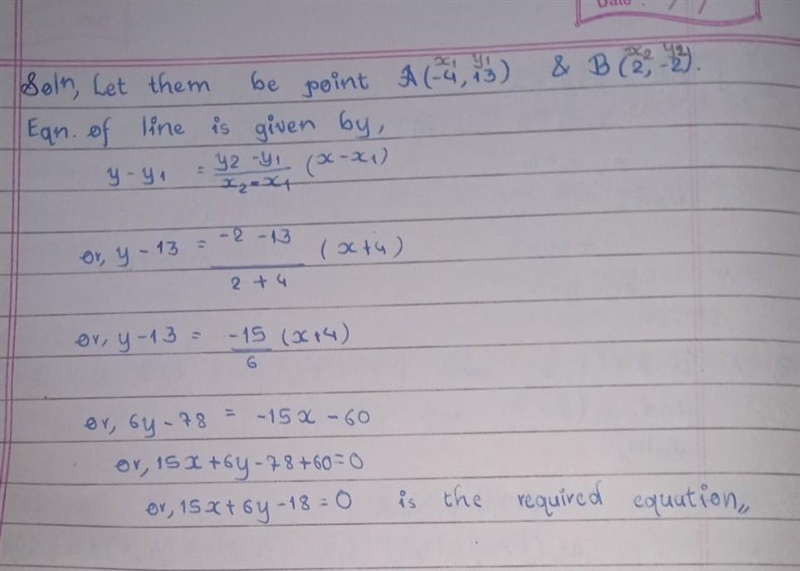 Date: / /
x1 y1 x2 y2
Soln, Let them be point A(-4, 13) & B(2, -2).
Eqn. of line is given by,
y - y1 = y2 - y1 / x2 - x1 (x - x1)
or, y - 13 = -2 - 13 / 2 + 4 (x+4)
or, y - 13 = -15 / 6 (x+4)
or, 6y - 78 = -15x - 60
or, 15x + 6y - 78 + 60 = 0
or, 15x + 6y - 18 = 0 is the required equation,,